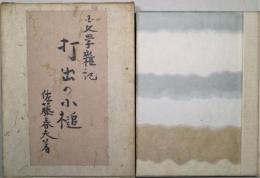 文学雑記
打出の小槌
佐藤春夫著